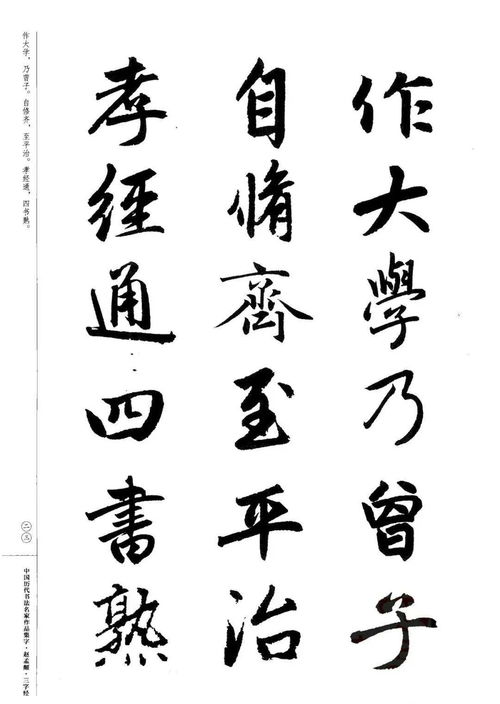 作大學乃曾子
自脩齊至平治
孝經通四書熟
作大学，乃曾子。自修齐，至平治。孝经通，四书熟。
二三
中国历代书法名家作品集字·赵孟頫·三字经